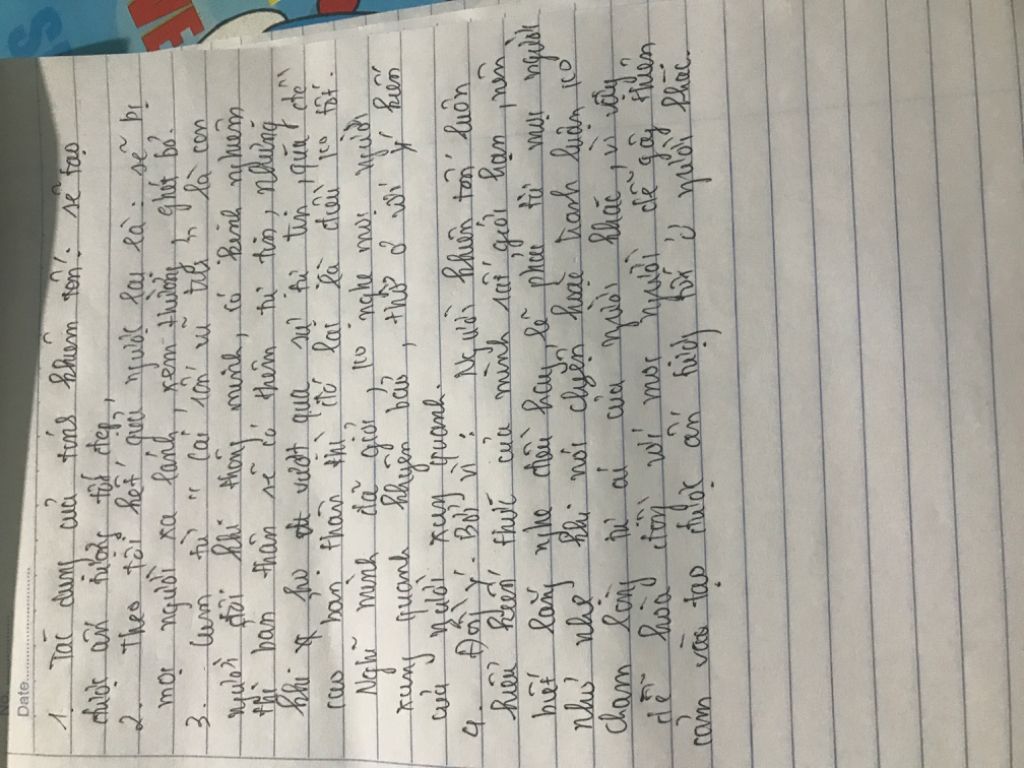 No.
Date
1. Tác dụng của tính khiêm tốn: sẽ tạo
được ấn tượng tốt đẹp,
2. Theo tôi hết quả ngược lại là: sẽ bị
mọi người xa lánh, xem thường, ghét bỏ.
3. Cụm từ "cái tôi vị tch" là con
người đôi khi thông minh, có kinh nghiệm
thì bản thân sẽ có thêm tự tin, nhưng
khi họ vượt qua sự tự tin, quá đề
cao bản thân thì đó lại là điều ko tốt.
Nghĩ mình đã giỏi, ko nghe mọi người
xung quanh khuyên bảo, thờ ơ với ý kiến
của người xung quanh.
4. Đồng ý. Bởi vì: Người khiêm tốn luôn
hiểu kiến thức của mình sẽ giới hạn, nên
biết lắng nghe điều hay, lẽ phải từ mọi người
như nhẹ khi nói chuyện hoặc tranh luận, ko
chạm lòng tự ái của người khác, vì vậy
dễ hòa đồng với mọi người dễ gây thiện
cảm và tạo được ấn tượng tốt ở người khác.